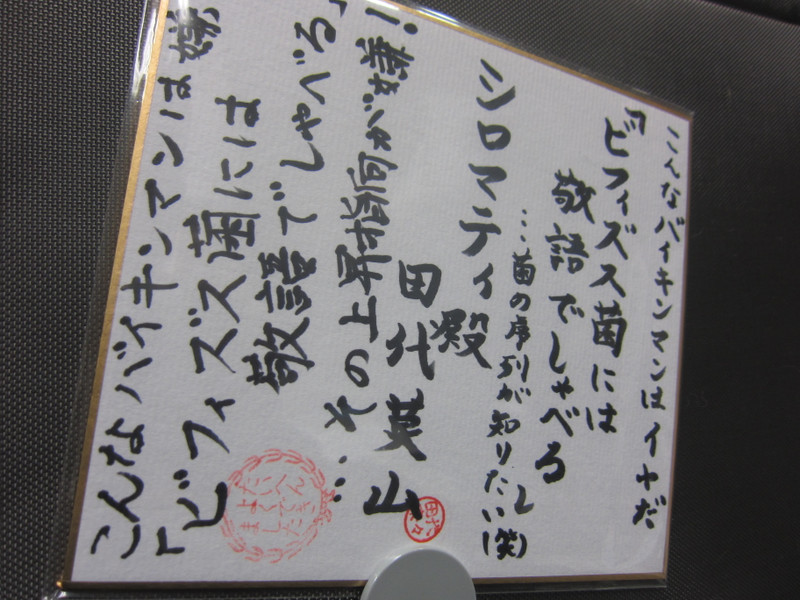 こんなバイキンマンはイヤだ
『ビフィズス菌には
敬語でしゃべる』
…菌の序列が知りたい(笑)
シロマティ殿
こんなバイキンマンは嫌
「ビフィズス菌には
敬語でしゃべる」
…その上昇指向が嫌!
田代
たいへん
よくでき
ました